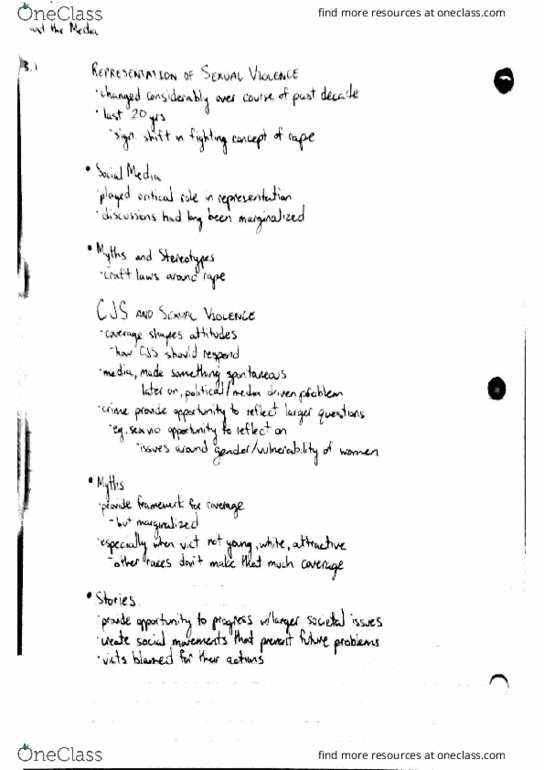 OneClass
find more resources at oneclass.com
and the Media
3.1
REPRESENTATION OF SEXUAL VIOLENCE
·changed considerably over course of past decade
·last 20yrs
-sign. shift in fighting concept of rape
•Social Media
·played critical role in representation
·discussions had long been marginalized
•Myths and Stereotypes
·craft laws around rape
CJS AND SEXUAL VIOLENCE
·coverage shapes attitudes
-how CJS should respond
·media, made something spontaneous
later on, political/media driven problem
·crime provide opportunity to reflect larger questions
·eg. sex vio opportunity to reflect on
-issues around gender/vulnerability of women
•Myths
·provide framework for coverage
-but marginalized
·especially when vict not young, white, attractive
-other races don't make that much coverage
•Stories
·provide opportunity to progress w/larger societal issues
·create social movements that prevent future problems
·victs blamed for their actions
OneClass
find more resources at oneclass.com